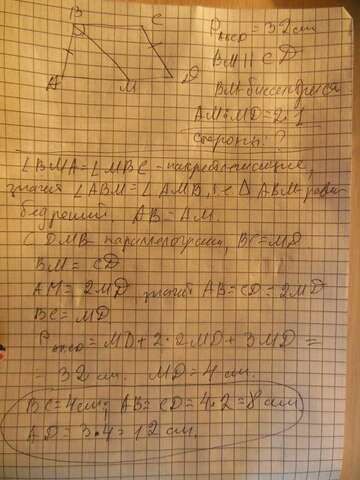 B C
A M D
P_ABCD = 32 см
BM || CD
BM биссектриса
AM:MD=2:1
стороны?
∠BMA=∠MBC - накрест лежащие,
значит ∠ABM=∠AMB, т.е. Δ ABM равно
бедренный, AB=AM.
CDMB параллелограмм, BC=MD.
BM = CD
AM = 2MD, значит AB=CD=2MD
BC=MD
P_ABCD = MD+2·2MD+3MD =
= 32 см. MD=4 см.
BC=4см; AB=CD=4·2=8 см
AD=3·4=12 см.